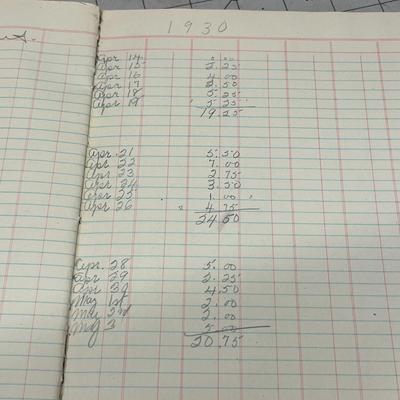 1930
Apr 14 0.00
Apr 15 2.25
Apr 16 4.00
Apr 17 2.50
Apr 18 5.25
Apr 19 5.25
19.25
Apr. 21 5.50
Apr 22 7.00
Apr 23 2.75
Apr 24 3.50
Apr 25 1.00
Apr 26 4.75
24.50
Apr. 28 5.00
Apr 29 2.25
Apr 30 4.50
May 1st 2.00
May 2nd 2.00
May 3 5.00
20.75